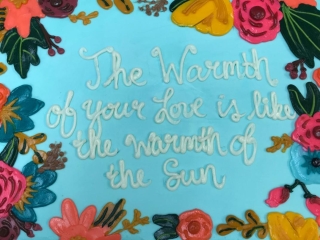 The Warmth
of your Love is like
the warmth of
the Sun